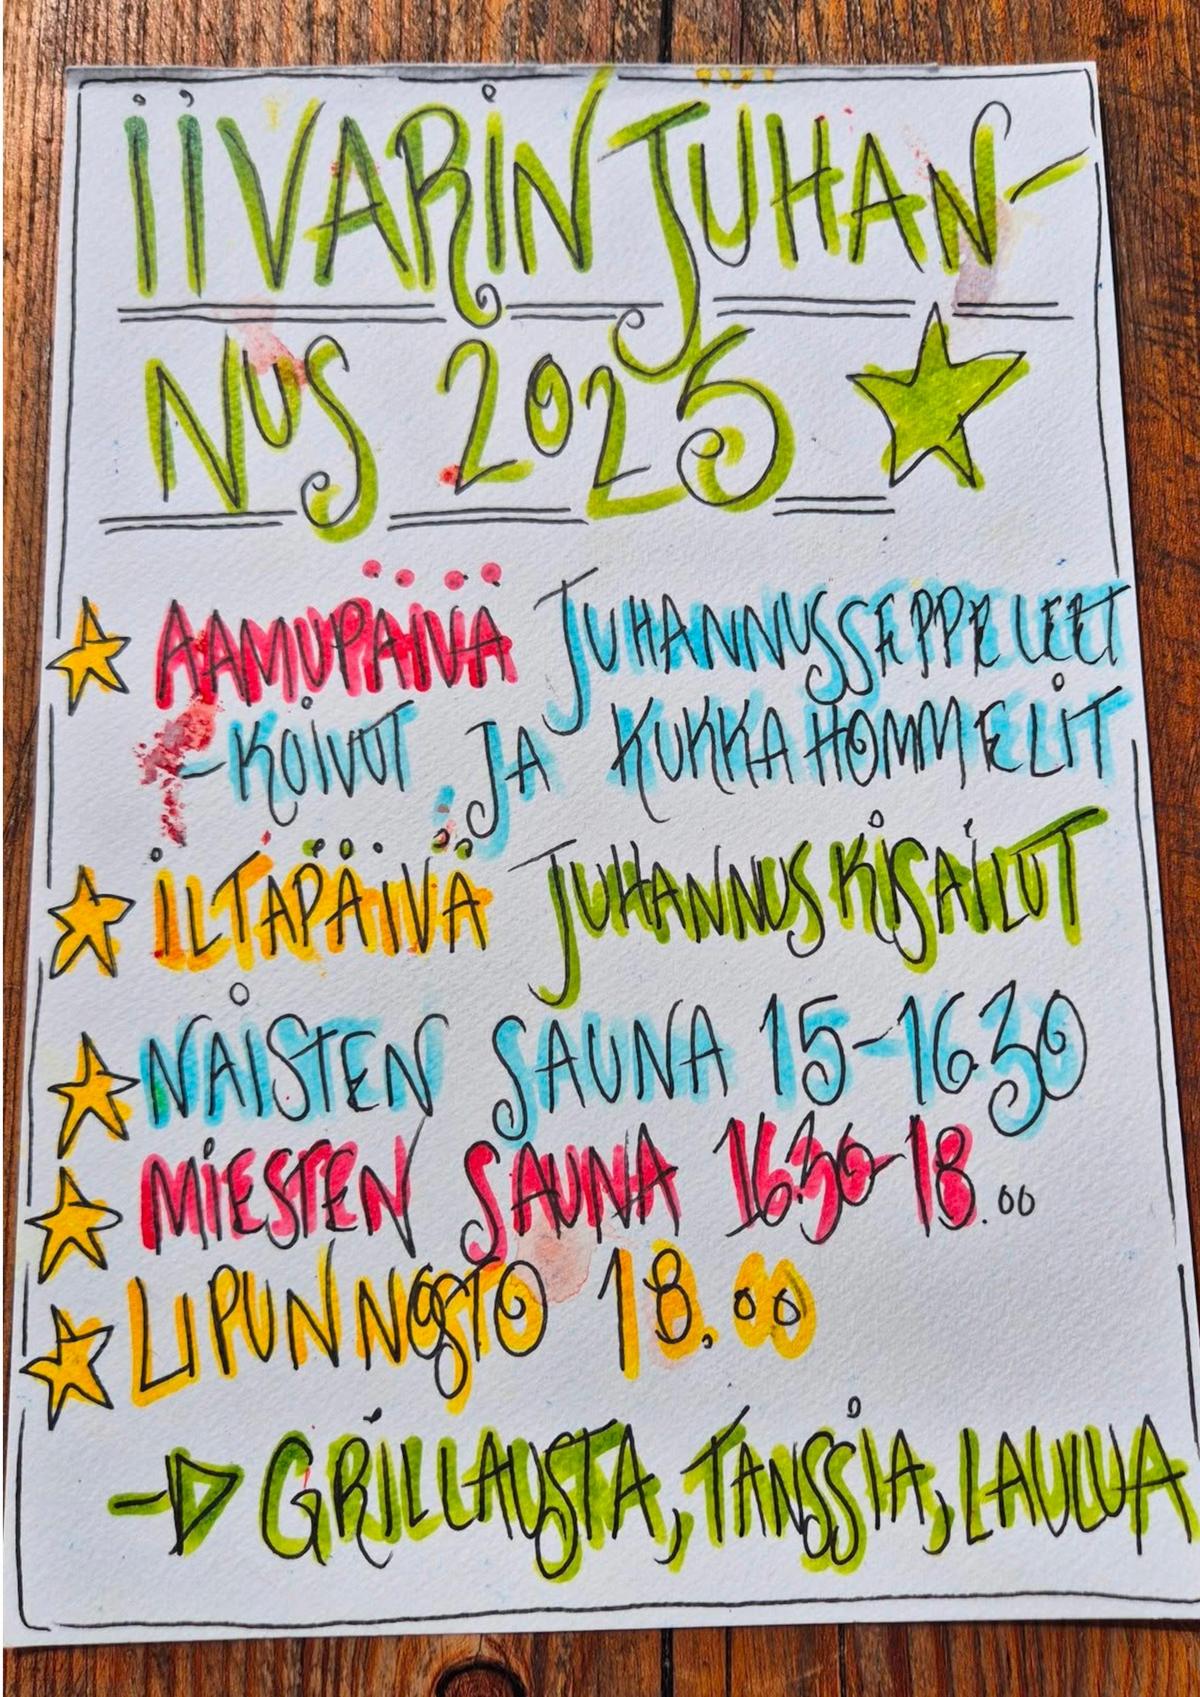 IIVARIN JUHAN-
NUS 2025
AAMUPÄIVÄ JUHANNUSSEPPELEET
-KOIVUT JA KUKKAHOMMELIT
ILTAPÄIVÄ JUHANNUSKISAILUT
NAISTEN SAUNA 15-16.30
MIESTEN SAUNA 16.30-18.00
LIPUNNOSTO 18.00
GRILLAUSTA, TANSSIA, LAULUA